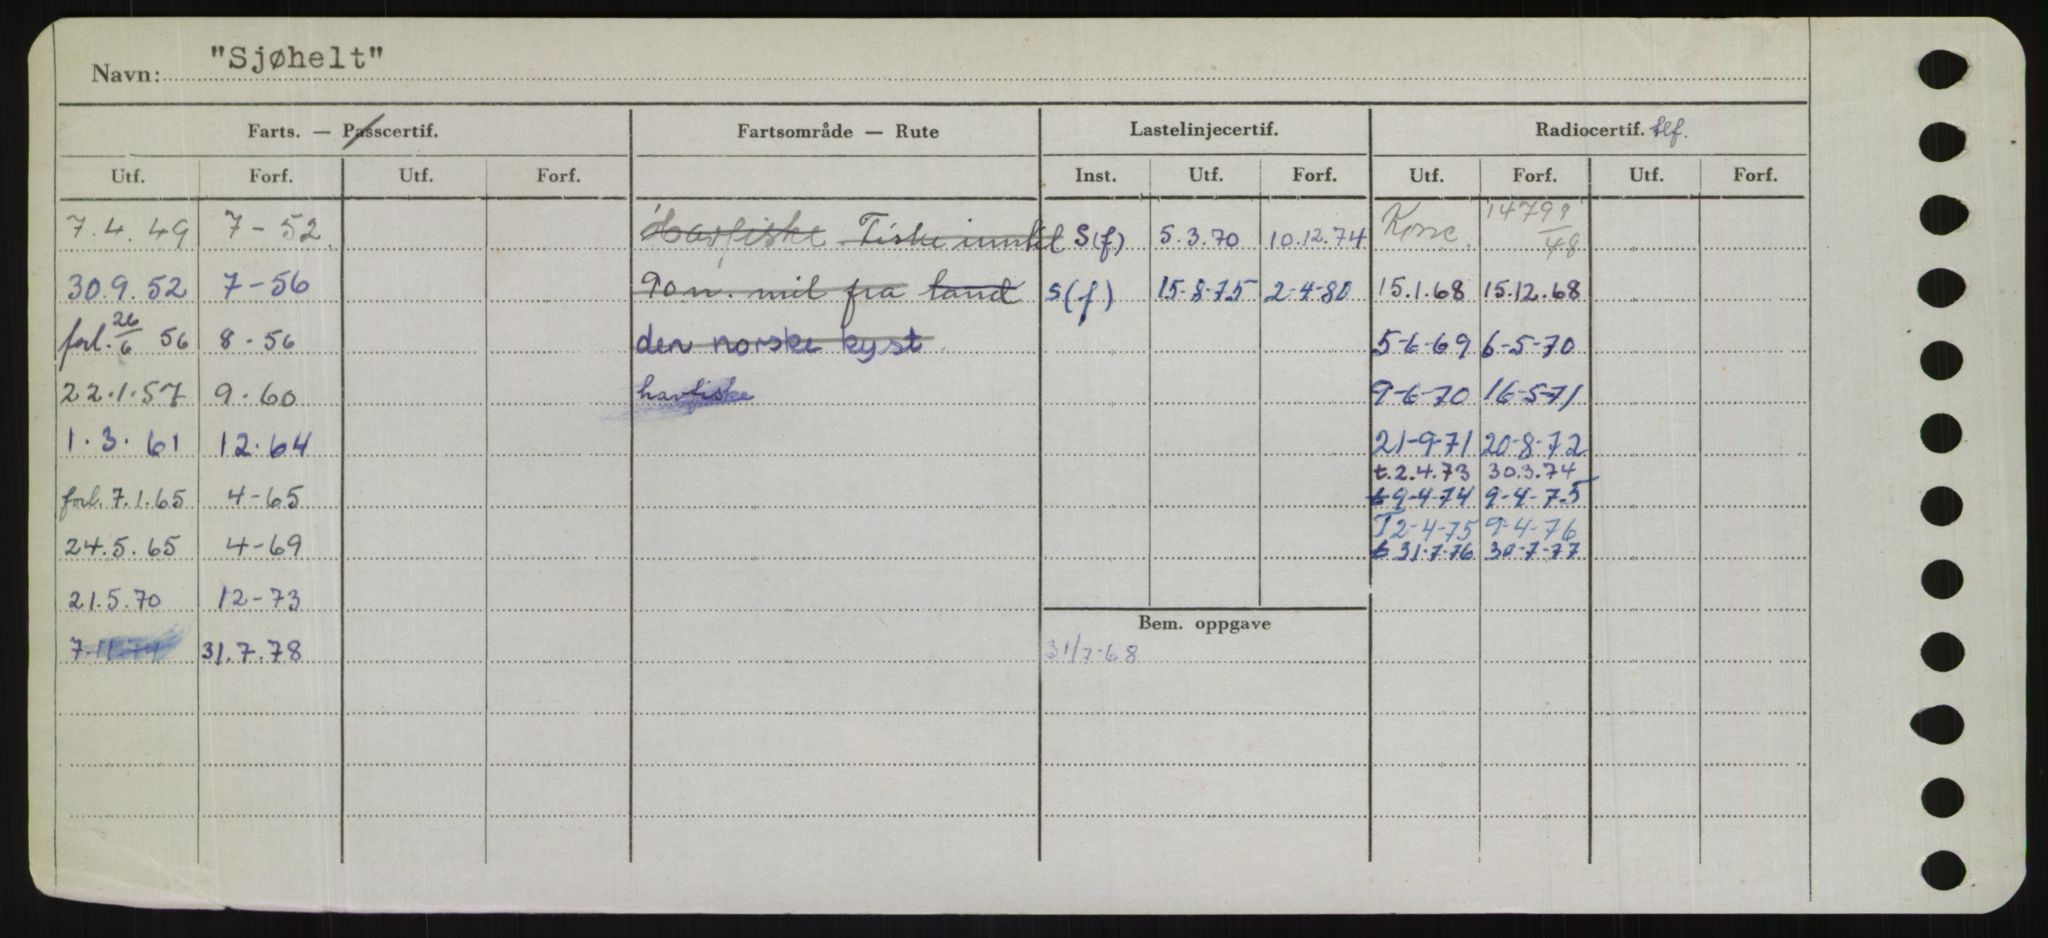 Navn: "Sjøhelt"
Farts. — Passcertif. Fartsområde — Rute Lastelinjecertif. Radiocertif. tlf.
Utf. Forf. Utf. Forf. Inst. Utf. Forf. Utf. Forf. Utf. Forf.
7.4.49 7-52 Havfiske Fiske inntil S(f) 5.3.70 10.12.74 Konc. 14791/48
30.9.52 7-56 90 n. mil fra land s(f) 15-8-75 2-4-80 15.1.68 15.12.68
forl. 26/6 56 8-56 den norske kyst 5-6-69 6-5-70
22.1.57 9.60 havfiske 9-6-70 16-5-71
1.3.61 12.64 21-9-71 20-8-72
t.2.4.73 30.3.74
forl. 7.1.65 4-65 t 9-4-74 9-4-75
T 2-4-75 9-4-76
24.5.65 4-69 t 31.7.76 30-7-77
21.5.70 12-73
Bem. oppgave
7.11.74 31.7.78 31/7-68